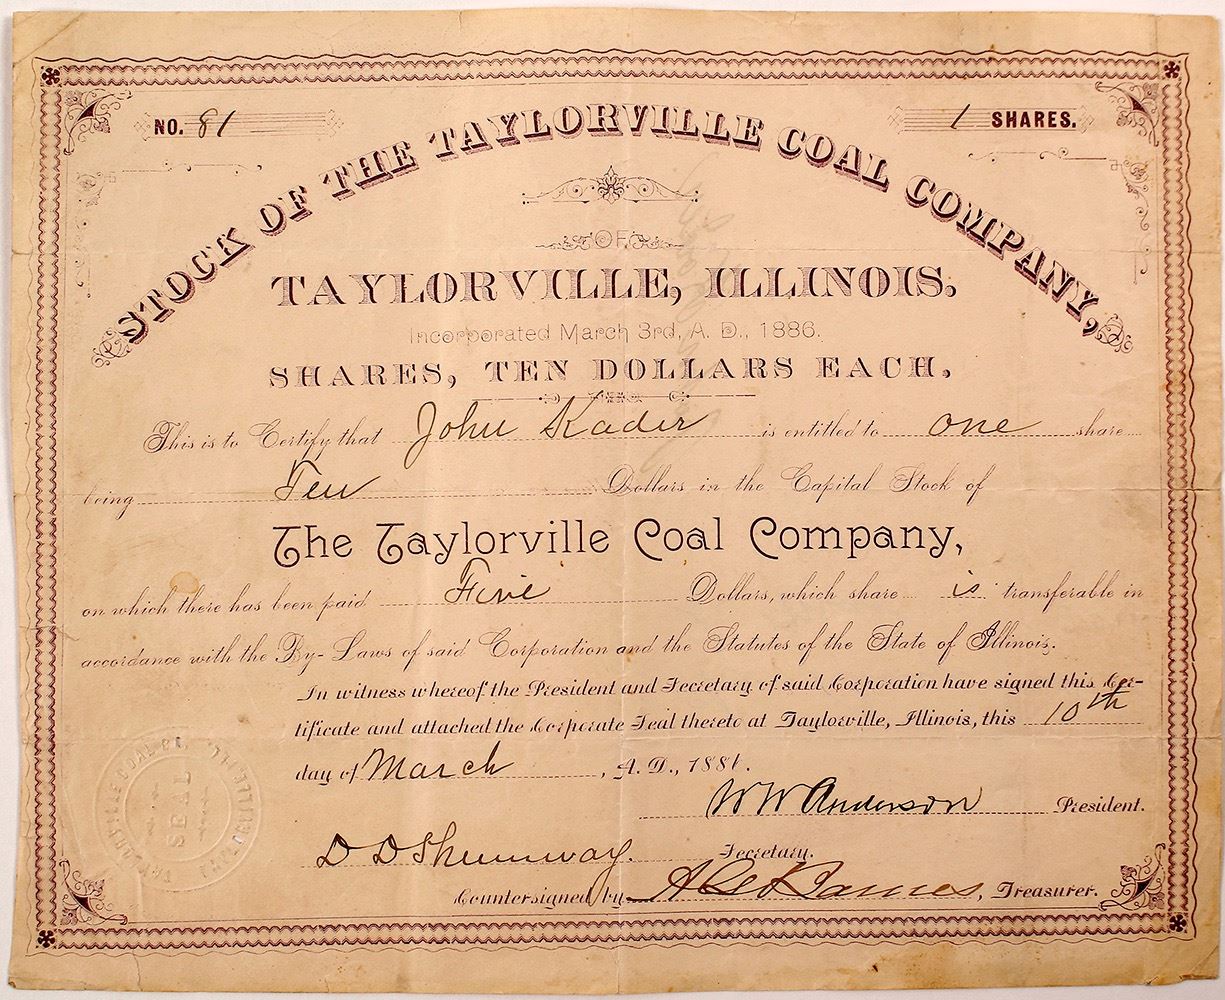 NO. 81
1 SHARES.
STOCK OF THE TAYLORVILLE COAL COMPANY,
OF
TAYLORVILLE, ILLINOIS.
Incorporated March 3rd, A. D., 1886.
SHARES, TEN DOLLARS EACH.
This is to Certify that John Kader is entitled to one share
being Ten Dollars in the Capital Stock of
The Taylorville Coal Company,
on which there has been paid Five Dollars, which share is transferable in
accordance with the By-Laws of said Corporation and the Statutes of the State of Illinois.
In witness whereof the President and Secretary of said Corporation have signed this Cer-
tificate and attached the Corporate Seal thereto at Taylorville, Illinois, this 10th
day of March, A. D., 1881.
WW Anderson President.
D D Shumway. Secretary.
Countersigned by Barnes, Treasurer.
TAYLORVILLE COAL CO.
SEAL